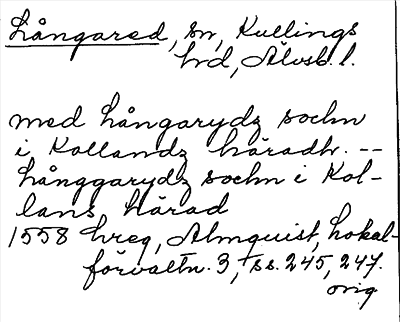 Långared, sn, Kullings
hd, Älvsb. l.
med Långarydz sochn
i Kollandz häradh. --
Långgarydz sochn i Kol-
lans härad
1558 hreg, Almquist, Lokal-
förvaltn. 3, ss. 245, 247.
orig